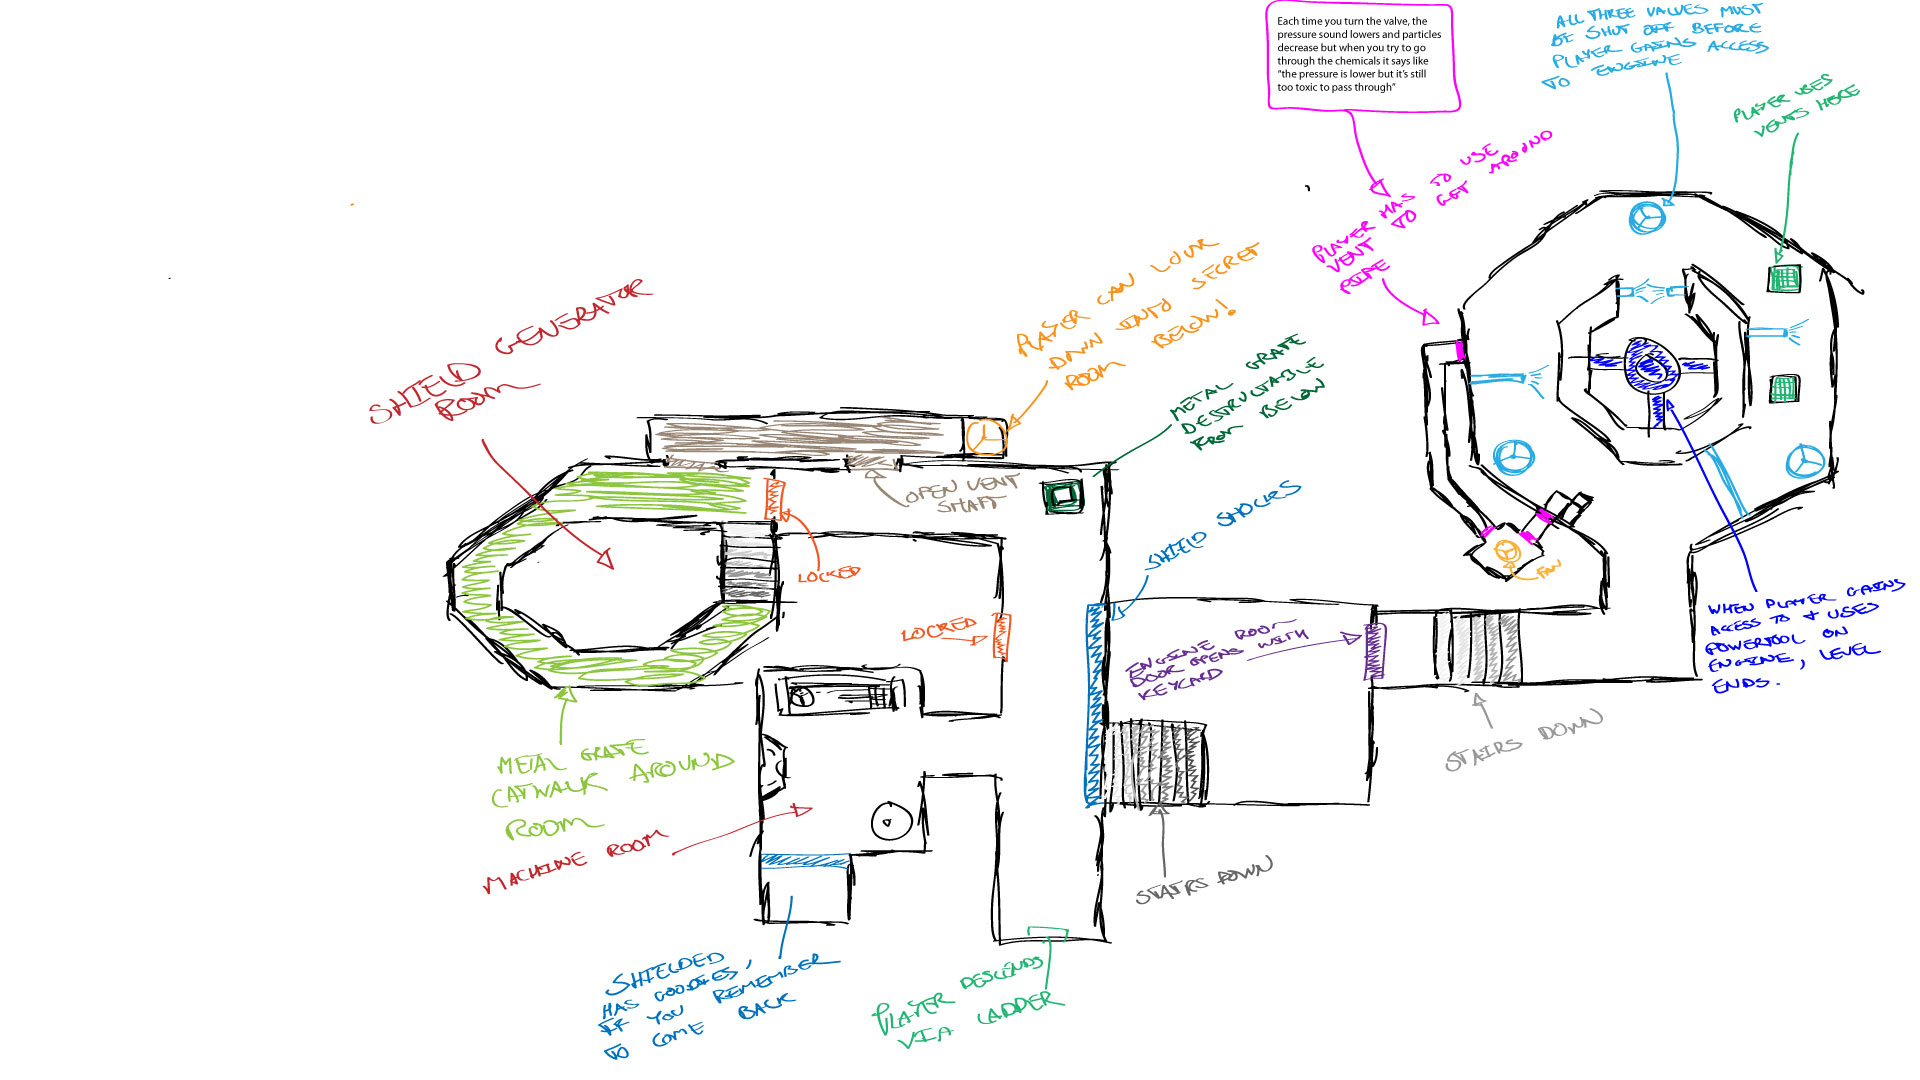 Each time you turn the valve, the
pressure sound lowers and particles
decrease but when you try to go
through the chemicals it says like
"the pressure is lower but it's still
too toxic to pass through"
ALL THREE VALVES MUST
BE SHUT OFF BEFORE
PLAYER GAINS ACCESS
TO ENGINE
PLAYER USES
VENTS HERE
PLAYER HAS TO USE
VENT TO GET AROUND
PIPE
PLAYER CAN LOOK
DOWN INTO SECRET
ROOM BELOW!
SHIELD GENERATOR
ROOM
METAL GRATE
DESTRUCTABLE
FROM BELOW
OPEN VENT
SHAFT
SHIELD SHOCKS
LOCKED
LOCKED
FAN
ENGINE ROOM
DOOR OPENS WITH
KEYCARD
WHEN PLAYER GAINS
ACCESS TO + USES
POWERTOOL ON
ENGINE, LEVEL
ENDS.
STAIRS DOWN
METAL GRATE
CATWALK AROUND
ROOM
MACHINE ROOM
STAIRS DOWN
SHIELDED
HAS GOODIES,
IF YOU REMEMBER
TO COME BACK
PLAYER DESCENDS
VIA LADDER